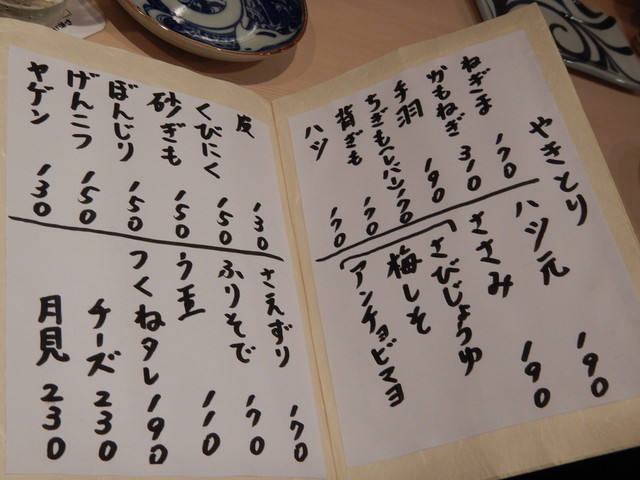 やきとり
ねぎま 170
かもねぎ 310
手羽 190
ちぎも(レバー) 170
背ぎも 170
ハツ 170
ハツ元 190
ささみ 190
さびじょうゆ
梅しそ
アンチョビマヨ
皮 130
くびにく 150
砂ぎも 150
ぼんじり 150
げんこつ 150
ヤゲン 130
さえずり 170
ふりそで 170
う玉 110
つくねタレ 190
チーズ 230
月見 230